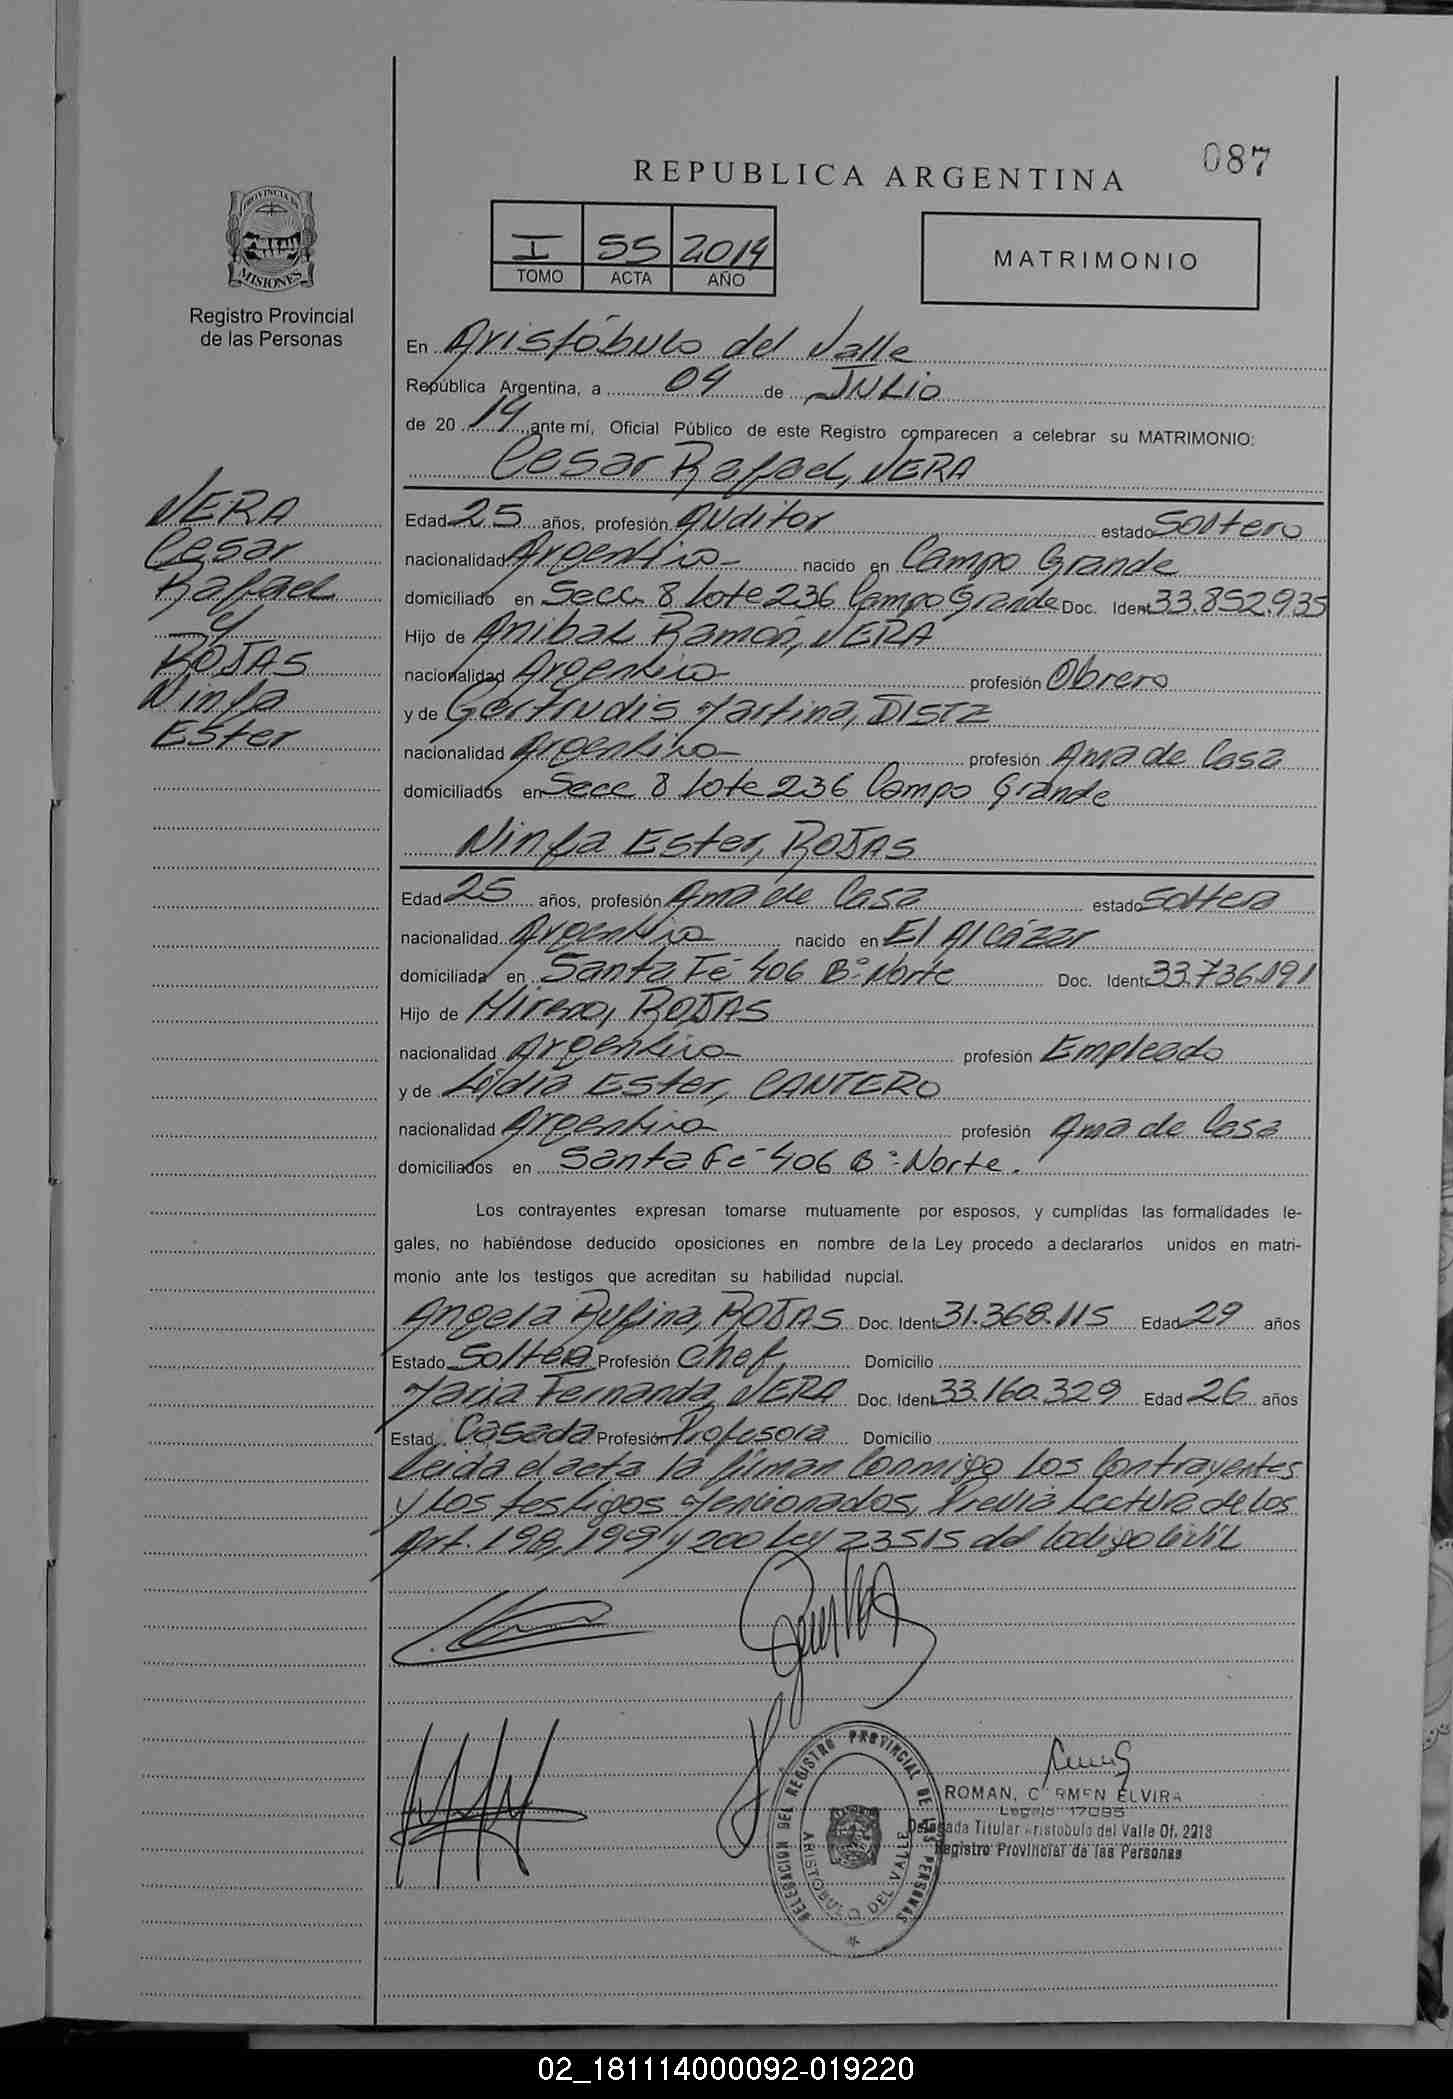 087
REPUBLICA ARGENTINA
I 55 2014
TOMO ACTA AÑO
MATRIMONIO
PROVINCIA DE
MISIONES
Registro Provincial
de las Personas
En Aristóbulo del Valle
República Argentina, a 04 de JULIO
de 20 14 ante mí, Oficial Público de este Registro comparecen a celebrar su MATRIMONIO:
Cesar Rafael, VERA
VERA
Cesar
Rafael
y
ROJAS
Ninfa
Ester
Edad 25 años, profesión Auditor estado Soltero
nacionalidad Argentina nacido en Campo Grande
domiciliado en Secc. 8 Lote 236 Campo Grande Doc. Ident 33.852.935
Hijo de Anibal Ramón, VERA
nacionalidad Argentina profesión Obrero
y de Gertrudis Martina,
nacionalidad Argentina profesión Ama de Casa
domiciliados en Secc 8 Lote 236 Campo Grande
Ninfa Ester, ROJAS
Edad 25 años, profesión Ama de Casa estado Soltera
nacionalidad Argentina nacido en El Alcázar
domiciliada en Santa Fé 406 B° Norte Doc. Ident 33.736.191
Hijo de ROJAS
nacionalidad Argentina profesión Empleado
y de Lidia Ester, CANTERO
nacionalidad Argentina profesión Ama de Casa
domiciliados en Santa Fé 406 B° Norte.
Los contrayentes expresan tomarse mutuamente por esposos, y cumplidas las formalidades le-
gales, no habiéndose deducido oposiciones en nombre de la Ley procedo a declararlos unidos en matri-
monio ante los testigos que acreditan su habilidad nupcial.
Angela Rufina, ROJAS Doc. Ident 31.368.115 Edad 29 años
Estado Soltera Profesión Chef. Domicilio
Maria Fernanda, VERA Doc. Ident 33.160.329 Edad 26 años
Estad. Casada Profesión Profesora Domicilio
Leida el acta la firman Conmigo los Contrayentes
y los testigos Mencionados, Previa Lectura de los
Art. 198, 199 y 200 Ley 23515 del Codigo Civil
DELEGACION DEL REGISTRO PROVINCIAL DE LAS PERSONAS
ARISTOBULO DEL VALLE
ROMAN, CARMEN ELVIRA
Legajo 17095
Delegada Titular Aristobulo del Valle Of. 2213
Registro Provincial de las Personas
02_181114000092-019220